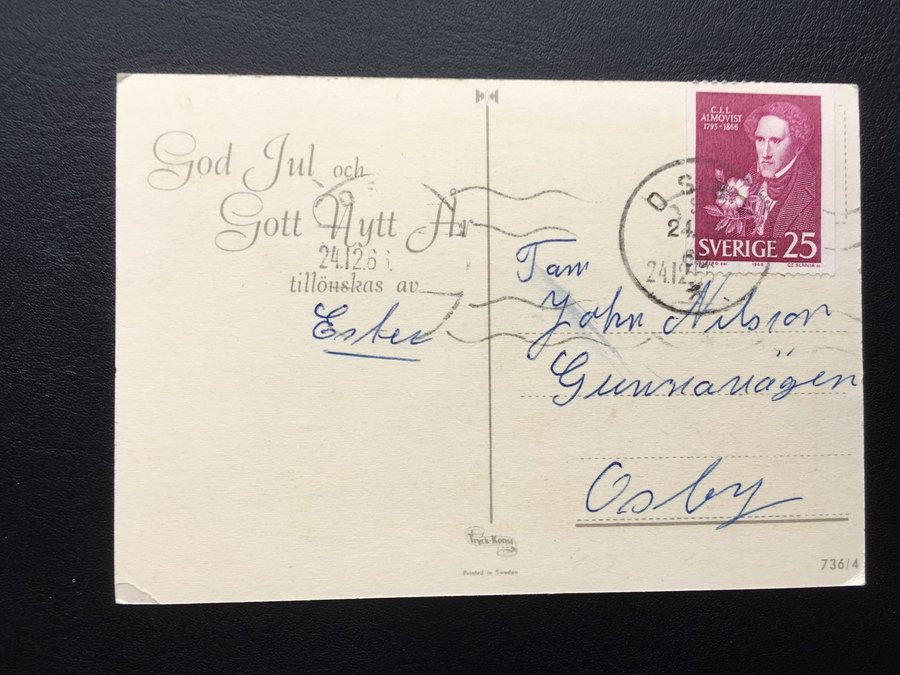 God Jul och
Gott Nytt År
24.12.6
tillönskas av
Ester
C.J.L.
ALMQVIST
1793-1866
SVERIGE 25
1966
CZ SLANIA sc
24.12
Fam
John Nilsson
Gunnarvägen
Osby
Tryck-Konst
Printed in Sweden
736/4